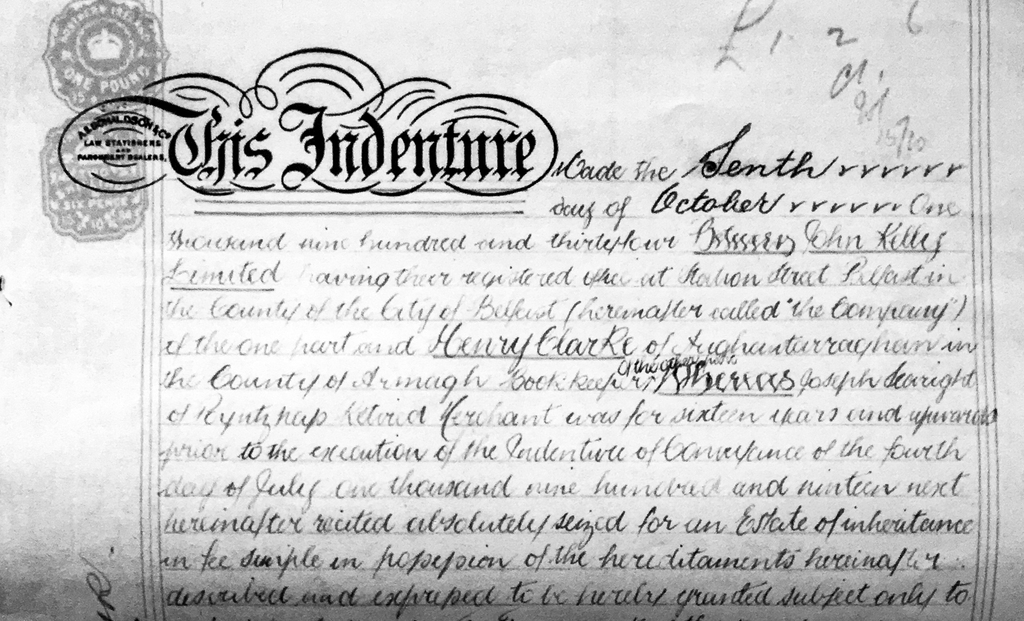 £1 2 6
ONE POUND
A. & J. DONALDSON & CO
LAW STATIONERS
AND
PARCHMENT DEALERS,
SIX PENCE
This Indenture Made the Tenth
day of October One
thousand nine hundred and thirty four Between John Kelly
Limited having their registered office at Station Street Belfast in
the County of the City of Belfast (hereinafter called "the Company")
of the one part and Henry Clarke of in
the County of Armagh Bookkeeper of the other part Whereas Joseph Searight
of Retired Merchant was for sixteen years and upwards
prior to the execution of the Indenture of Conveyance of the fourth
day of July one thousand nine hundred and nineteen next
hereinafter recited absolutely seized for an Estate of inheritance
in fee simple in possession of the hereditaments hereinafter
described and expressed to be hereby granted subject only to